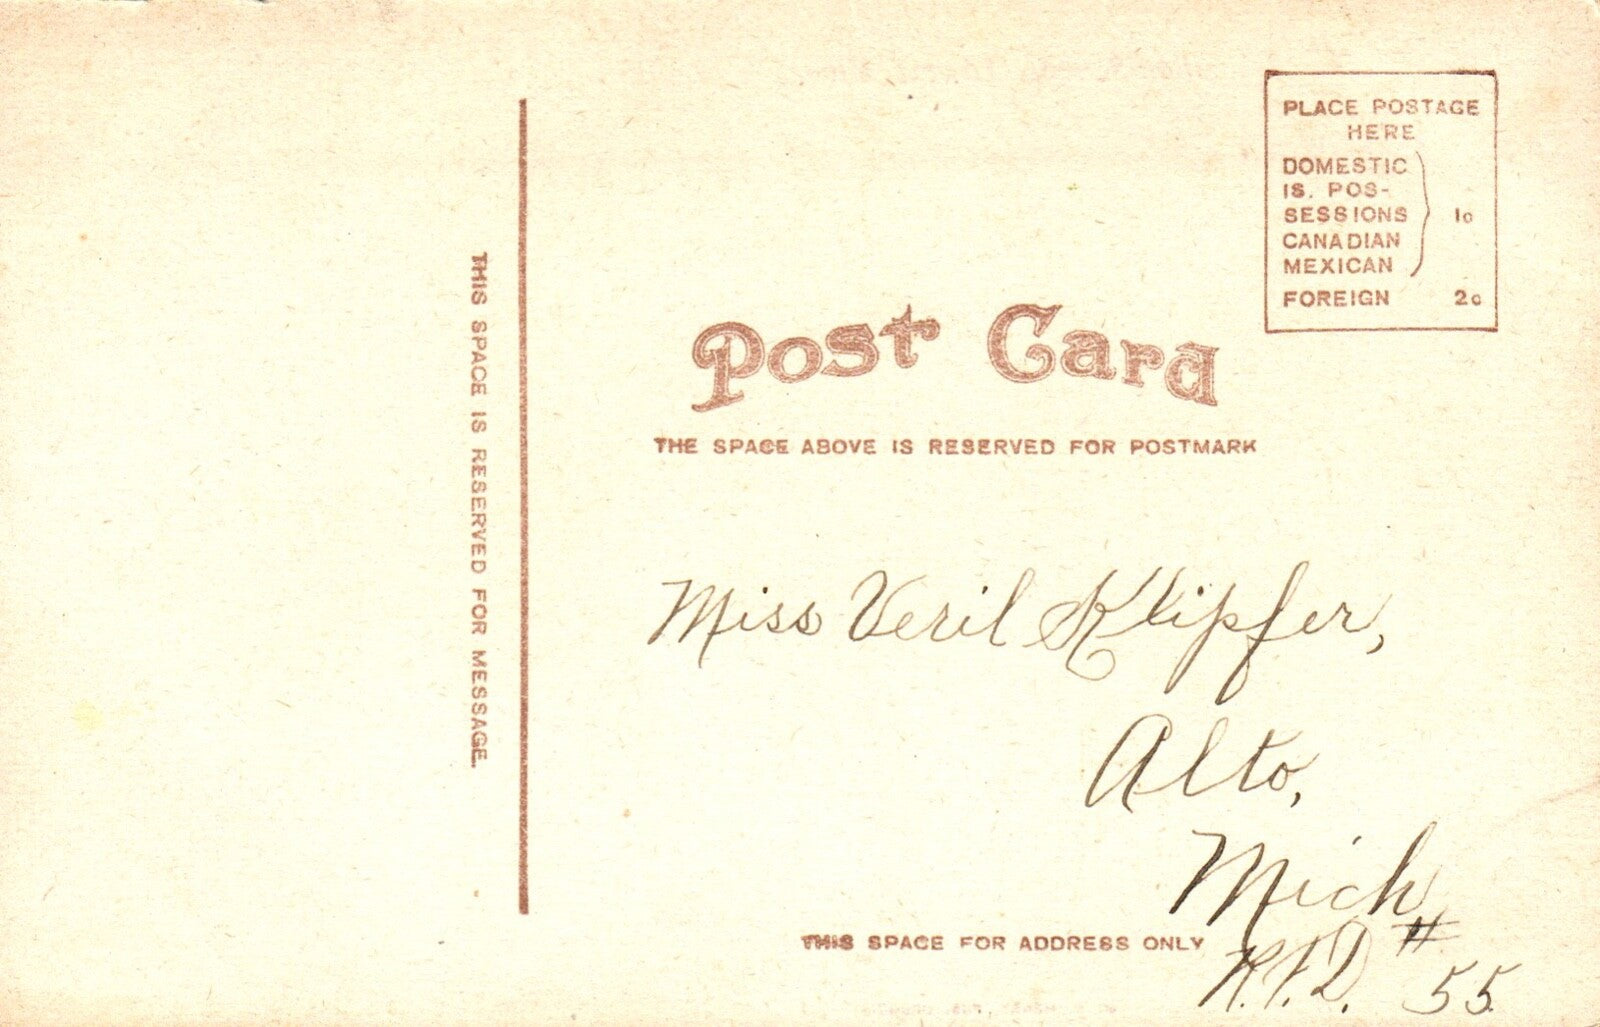 PLACE POSTAGE
HERE
DOMESTIC
IS. POS-
SESSIONS 1c
CANADIAN
MEXICAN
FOREIGN 2c
THIS SPACE IS RESERVED FOR MESSAGE.
Post Card
THE SPACE ABOVE IS RESERVED FOR POSTMARK
Miss Veril Klipfer,
Alto,
Mich
R.F.D. # 55
THIS SPACE FOR ADDRESS ONLY